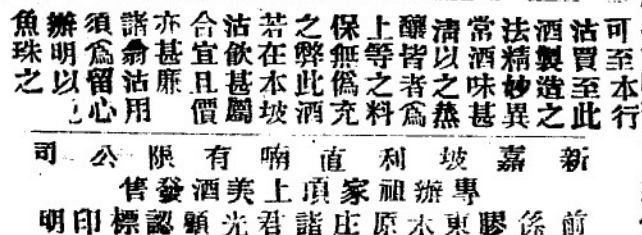 可至本行
沽買至此
酒製造之
法精妙異
常酒味甚
清以之蒸
釀皆者為
上等之料
保無偽充
之弊此酒
若在本坡
沽飲甚屬
合宜且價
亦甚廉
諸翁沽用
須為留心
辦明以
魚珠之
新嘉坡利直喃有限公司
專辦祖家頂上美酒發售
前係膠東木原庄諸君光顧認標印明